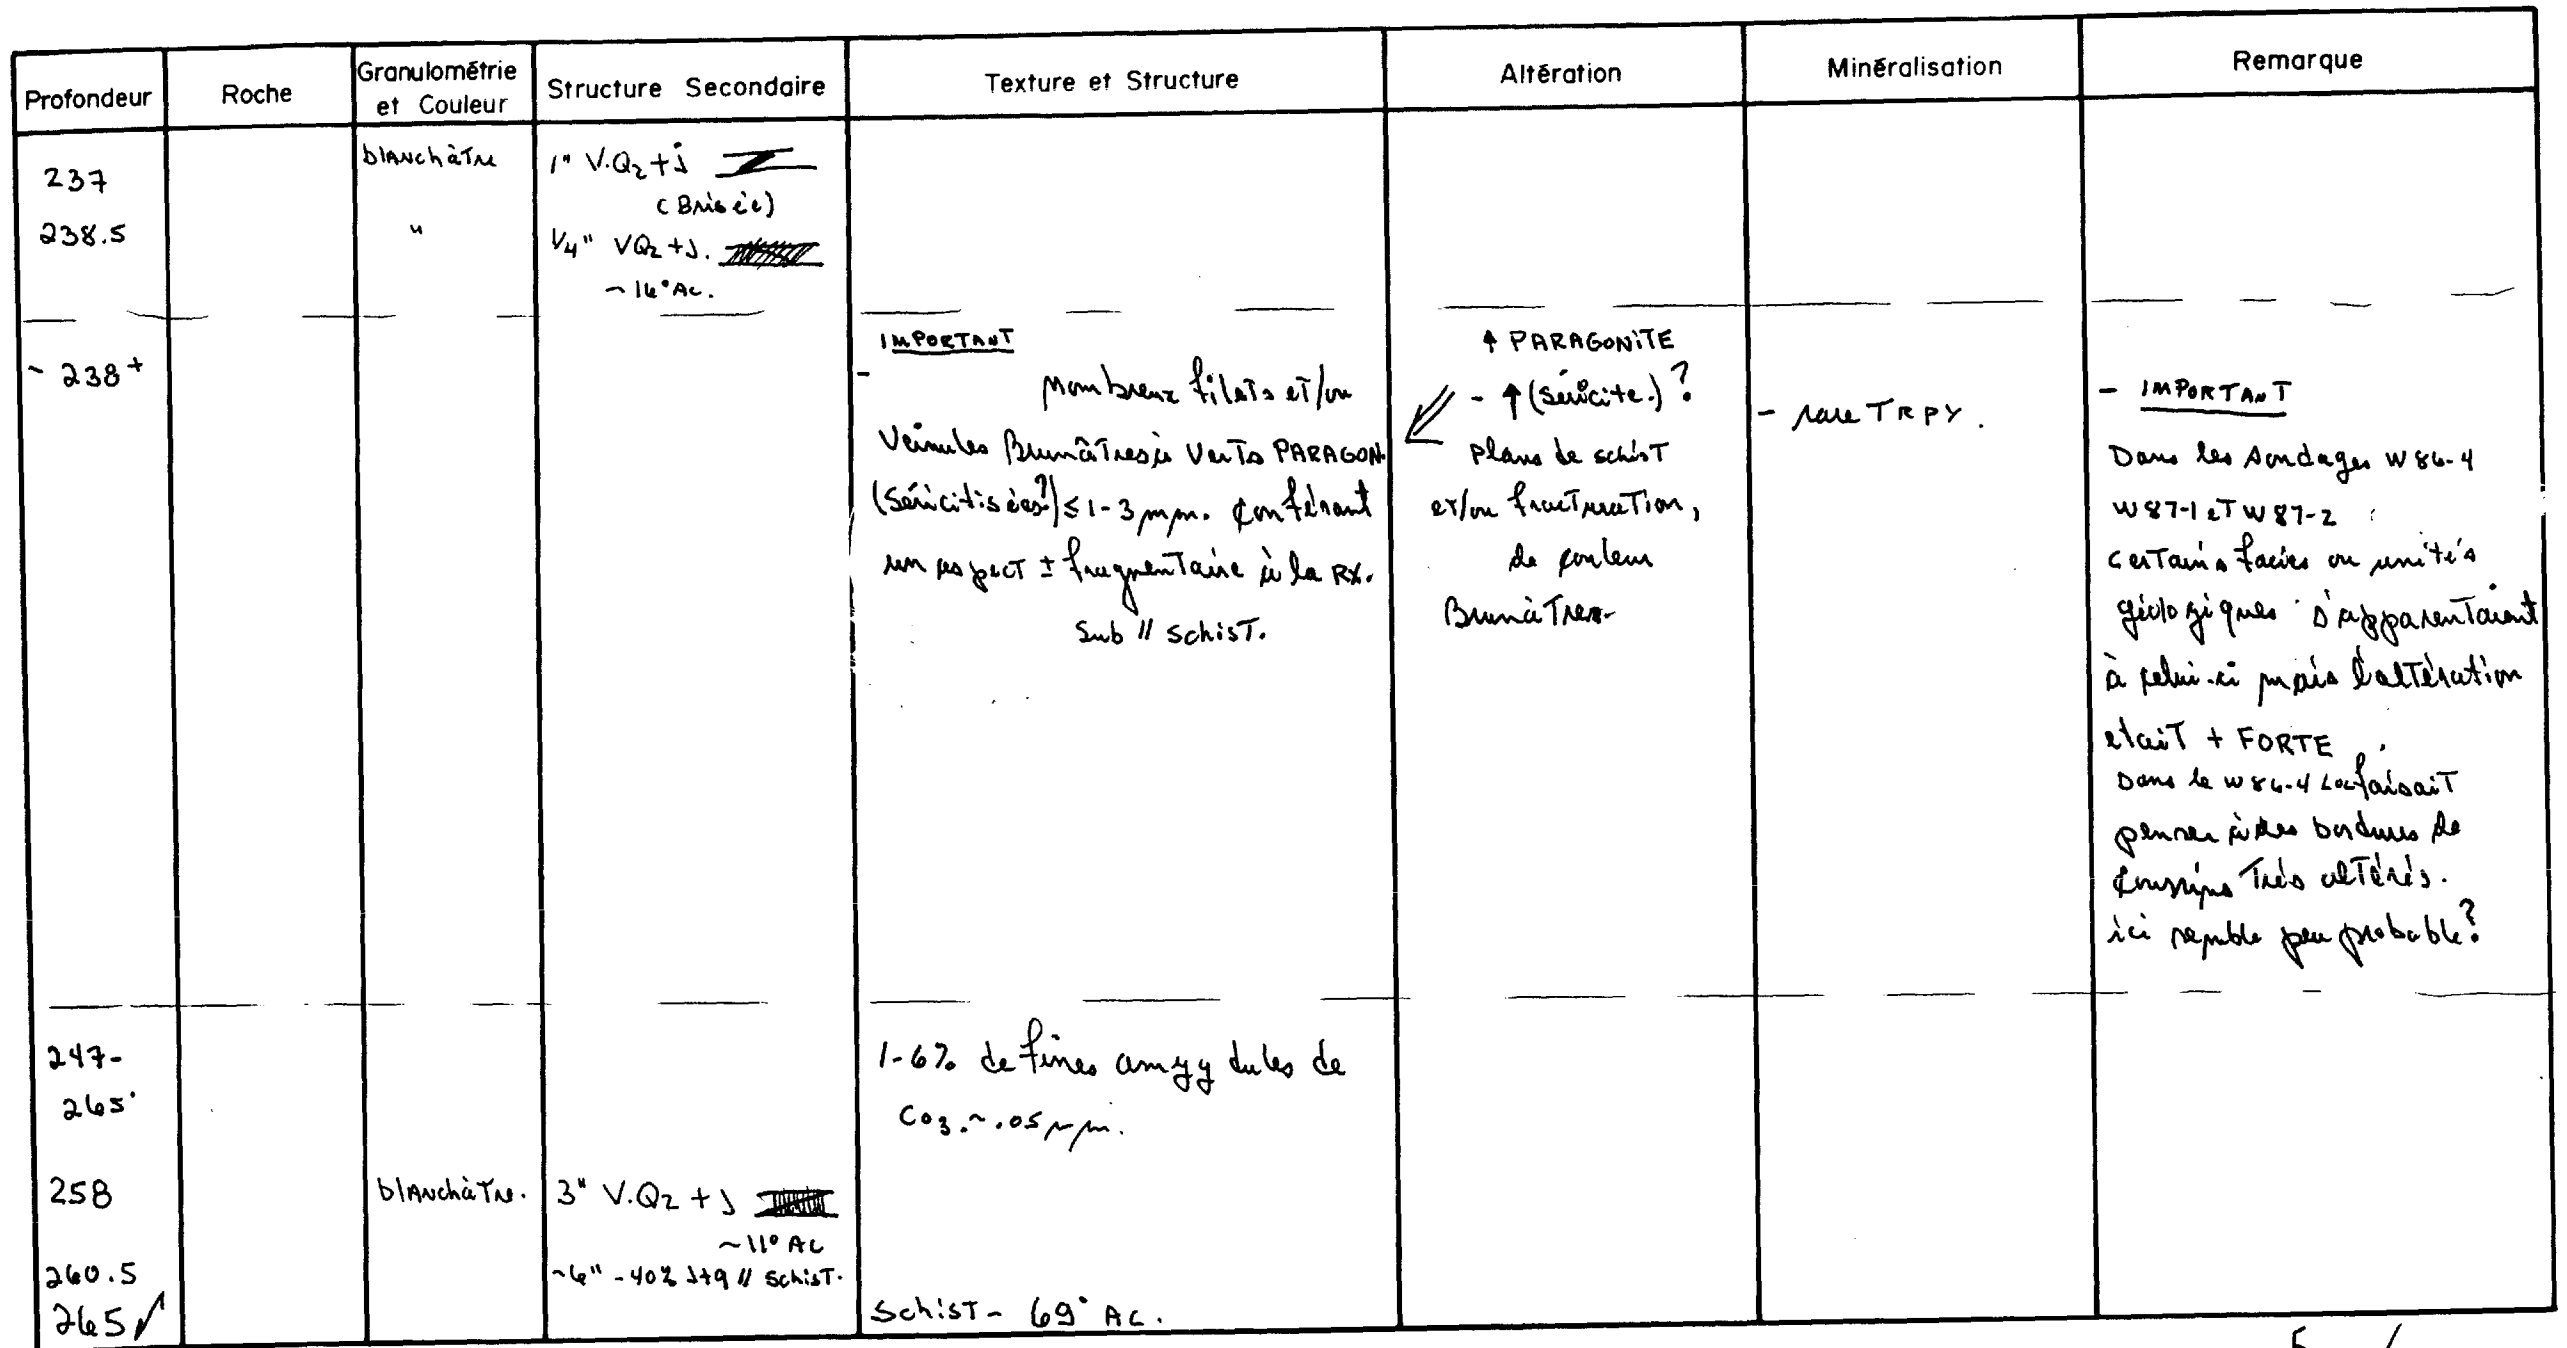 Profondeur
Roche
Granulométrie
et Couleur
Structure Secondaire
Texture et Structure
Altération
Minéralisation
Remarque
237
blanchâtre
1" V.Qz + j
(Brisée)
238.5
"
1/4" VQz + j.
~ 16° AC.
~ 238 +
IMPORTANT
- Nombreux filets et/ou
Veinules Brunâtres à Verts PARAGON.
(Séricitisées?) ≤ 1-3 mm. conférant
un aspect ± fragmentaire à la RX.
Sub // schist.
↑ PARAGONITE
- ↑ (Séricite.) ?
Plans de schist
et/ou fracturation,
de couleur
Brunâtres.
- rare TRPY.
- IMPORTANT
Dans les sondages W86-4
W87-1 et W87-2
certains faciès ou unités
géologiques s'apparentaient
à celui-ci mais l'altération
etait + FORTE
Dans le W86-4 Loc faisait
penser à des bordures de
coussins très altérés.
ici semble peu probable?
247-
265'
1-6% de fines amyydules de
CO3. ~ .05 mm.
258
blanchâtre.
3" V.Qz + j
~ 11° AC
260.5
~6" - 40% j+q // schist.
265
Schist - 69° AC.
5